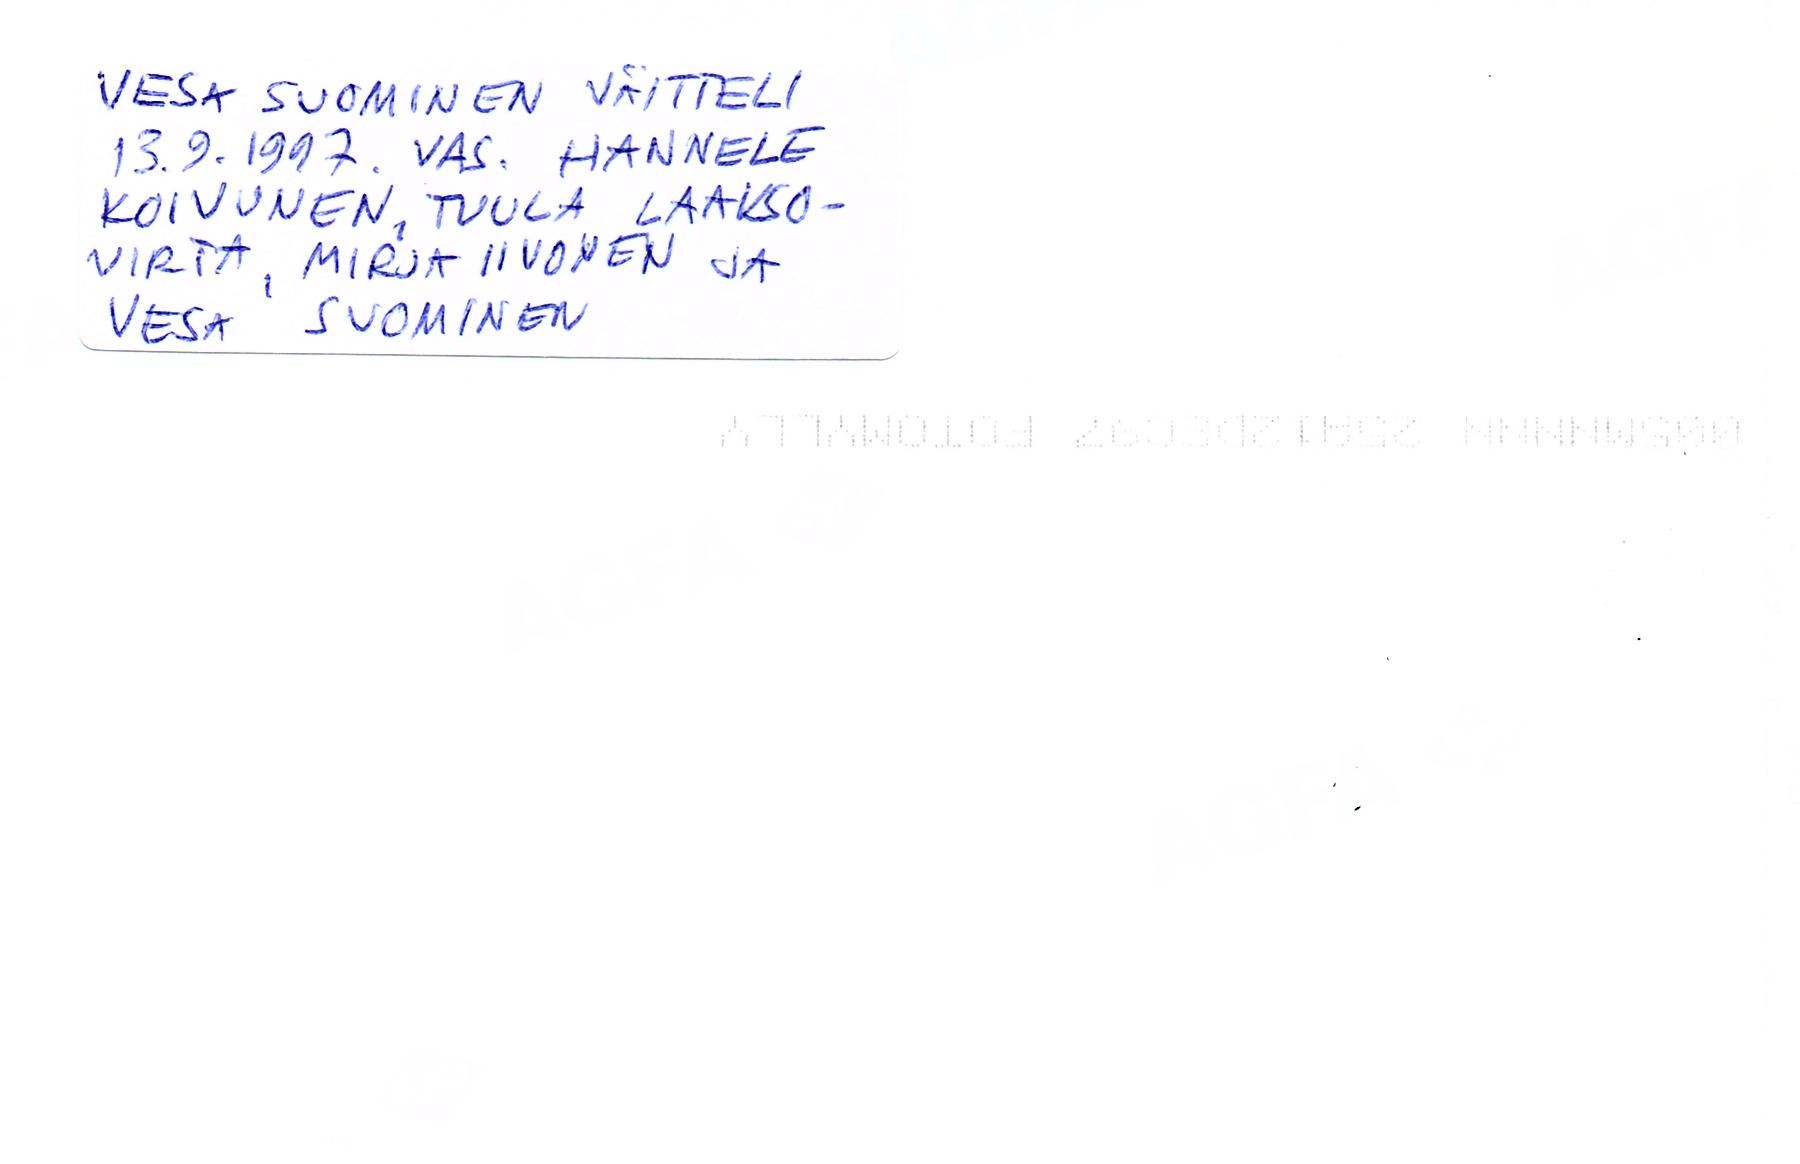 VESA SUOMINEN VÄITTELI
13.9.1997. VAS. HANNELE
KOIVUNEN, TUULA LAAKSO-
VIRTA, MIRJA IIVONEN JA
VESA SUOMINEN
FOTOMYLLY
AGFA
AGFA